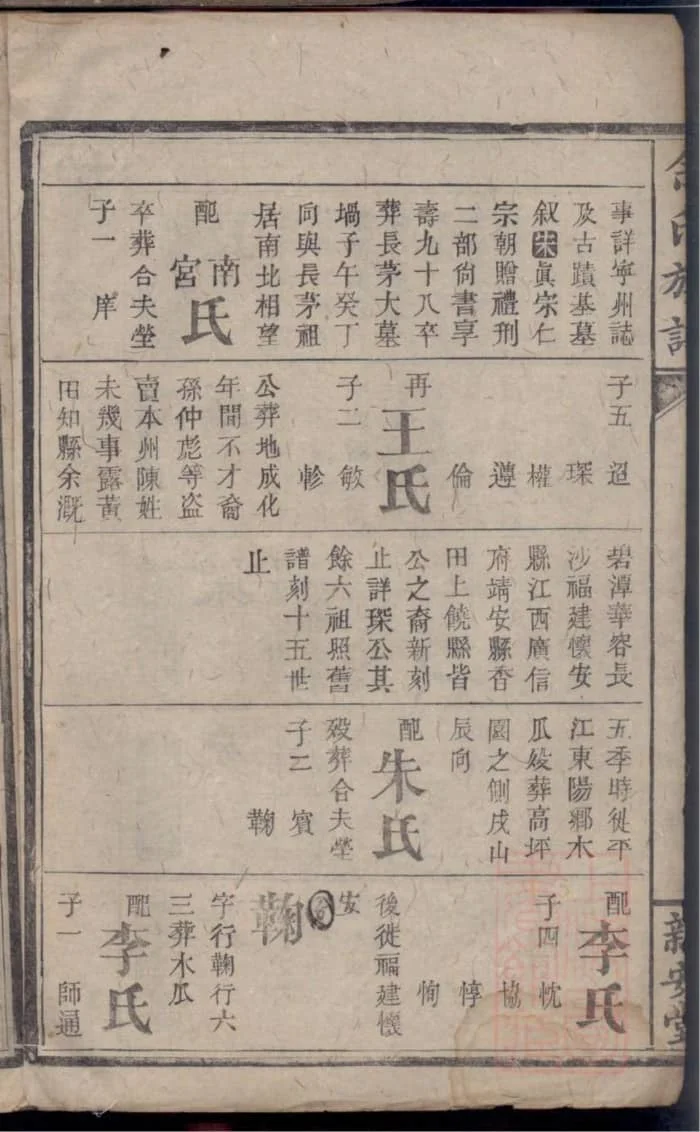 事詳寧州誌
及古蹟基墓
叙宋眞宗仁
宗朝贈禮刑
二部尚書享
壽九十八卒
葬長茅大墓
塌子午癸丁
向與長茅祖
居南北相望
配南宮氏
卒葬合夫塋
子一 庠
子五 迢
琛
權
遵
倫
再王氏
子二 敏
軫
公葬地成化
年間不才裔
孫仲彪等盗
賣本州陳姓
未幾事露黃
田知縣余溉
碧潭華容長
沙福建懷安
縣江西廣信
府靖安縣香
田上饒縣皆
公之裔新刻
止詳琛公其
餘六祖照舊
譜刻十五世
止
五季時徙平
江東陽鄉木
瓜歿葬高坪
園之側戌山
辰向
配朱氏
殁葬合夫塋
子二 賓
鞠
配李氏
子四 忱
協
惇
恂
後徙福建懷
安
鞠
字行鞠行六
三葬木瓜
配李氏
子一 師通
余氏族譜
新安堂